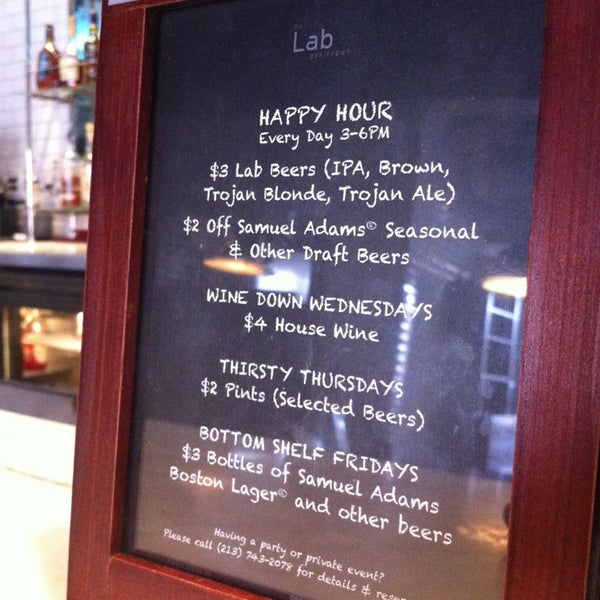 the
Lab
gastropub
HAPPY HOUR
Every Day 3-6PM
$3 Lab Beers (IPA, Brown,
Trojan Blonde, Trojan Ale)
$2 Off Samuel Adams® Seasonal
& Other Draft Beers
WINE DOWN WEDNESDAYS
$4 House Wine
THIRSTY THURSDAYS
$2 Pints (Selected Beers)
BOTTOM SHELF FRIDAYS
$3 Bottles of Samuel Adams
Boston Lager® and other beers
Having a party or private event?
Please call (213) 743-2078 for details &